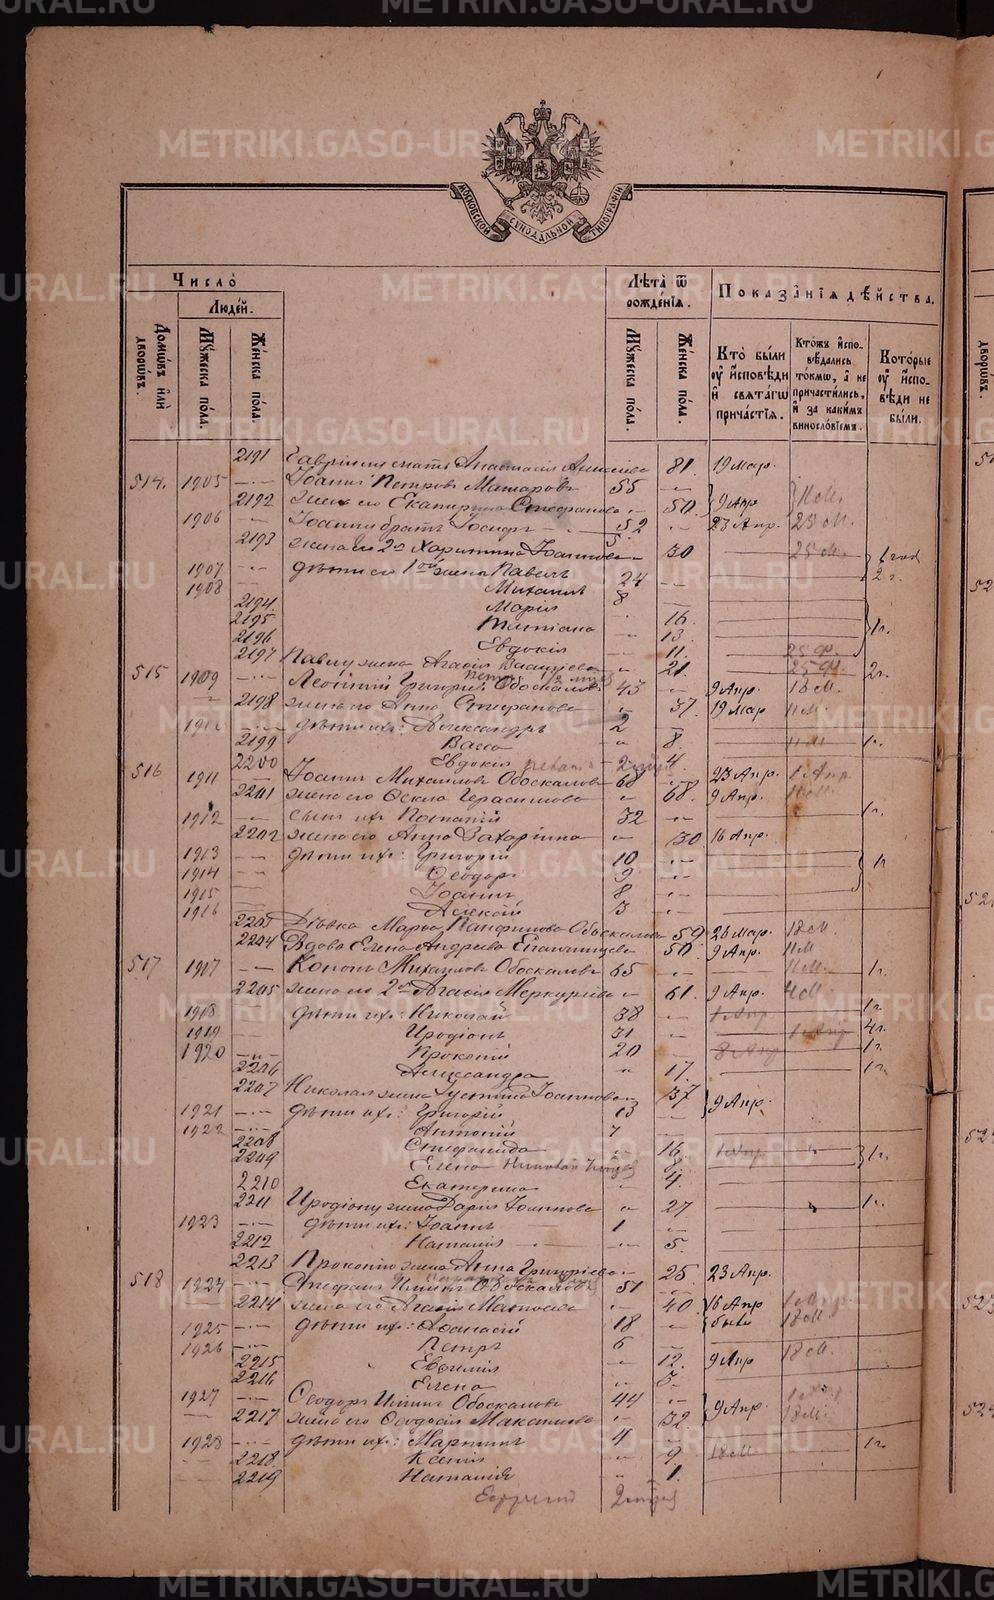 METRIKI.GASO-URAL.RU
МОСКОВСКОЙ СУНОДАЛЬНОЙ ТИПОГРАФІИ
Число̀
Люде́й.
Домѡ́въ и҆лѝ дворѡ́въ.
Мꙋ́жеска по́ла.
Же́нска по́ла.
Лѣ́та ѿ рожде́нїѧ.
Мꙋ́жеска по́ла.
Же́нска по́ла.
Показа̑нїѧ дѣ́йства.
Кто̀ бы́ли
ᲂу҆ и҆сповѣ́ди
и҆ свѧта́гѡ
прича́стїѧ.
Кто́жъ и҆спо-
вѣ́дались
то́кмѡ, а҆ не
причасти́лись,
и҆ за каки́мъ
винослѡ́вїемъ.
Кото́рые
ᲂу҆ и҆спо-
вѣ́ди не
бы́ли.
2191 Гавріилу мать Анастасія Алексѣева 81. 19 мар.
514. 1905 Іоаннъ Петровъ Макаровъ 55
2192 жена его Екатерина Стефанова 50. 9 Апр 11 М.
1906 Іоанну братъ Іосифъ 52 23 Апр. 25 М.
2193 жена его 2я Харитина Іоаннова 30 25 М. 1 год
1907 дѣти его 1ой жены Павелъ 24 2 г.
1908 Михаилъ 8
2194 Марія 16.
2195 Татіана 13. 1 г.
2196 Евдокія 11.
2197 Павлу жена Агафія 21. 25 Ф.
515 1909 Леонтій Григорьевъ Обоскаловъ 43 9 Апр. 18 М. 2 г.
2198 жена его Анна Стефанова 37. 19 мар 11 М.
1910 дѣти ихъ: Александръ 2
2199 Васса 8. 1 г.
2200 Евдокія 4.
516 1911 Іоаннъ Михаиловъ Обоскаловъ 68 23 Апр. 1 Апр
2201 жена его Ѳекла Герасимова 68. 9 Апр. 11 М.
1912 сынъ ихъ Игнатій 32 1 г.
2202 жена его Анна Захаріина 30 16 Апр.
1913 дѣти ихъ: Григорій 10
1914 Ѳеодоръ 9 1 г.
1915 Іоаннъ 8
1916 Алексій 3
2203 Дѣвка Марья Панфилова Обоскалова 59 26 мар. 18 М.
2204 Вдова Елена Андреева Епанчинцева 50. 9 Апр. 11 М
517 1917 Кононъ Михаиловъ Обоскаловъ 65 11 М. 1 г.
2205 жена его 2я Агафія Меркуріева 61. 9 Апр.
1918 дѣти ихъ: Николай 38 1 Апр. 1 г.
1919 Иродіонъ 31 1 Апр 4 г.
1920 Прокопій 20 8 Апр 1 г.
2206 Александра 17. 1 г.
2207 Николая жена Іустина Іоаннова 37 9 Апр.
1921 дѣти ихъ: Григорій 13
1922 Антоній 7
2208 Стефанида 16. 1 Апр 1 г.
2209 Елена 8.
2210 Екатерина 4.
2211 Иродіону жена Дарія Іоаннова 27 1 г.
1923 дѣти ихъ: Іоаннъ 1
2212 Наталія 5.
2213 Прокопію жена Анна Григоріева 25 23 Апр.
518 1924 Стефанъ Ильинъ Обоскаловъ 51
2214 жена его Агафія Матвѣева 40. 16 Апр
1925 дѣти ихъ: Аѳанасій 18 18 М.
1926 Петръ 6
2215 Евѳимія 12. 9 Апр 18 М.
2216 Елена 5.
1927 Ѳеодоръ Ильинъ Обоскаловъ 44
2217 жена его Ѳеодосія Максимова 32 9 Апр. 18 М.
1928 дѣти ихъ: Мартинъ 4 1 г.
2218 Ксенія 9. 18 М.
2219 Наталія 1.